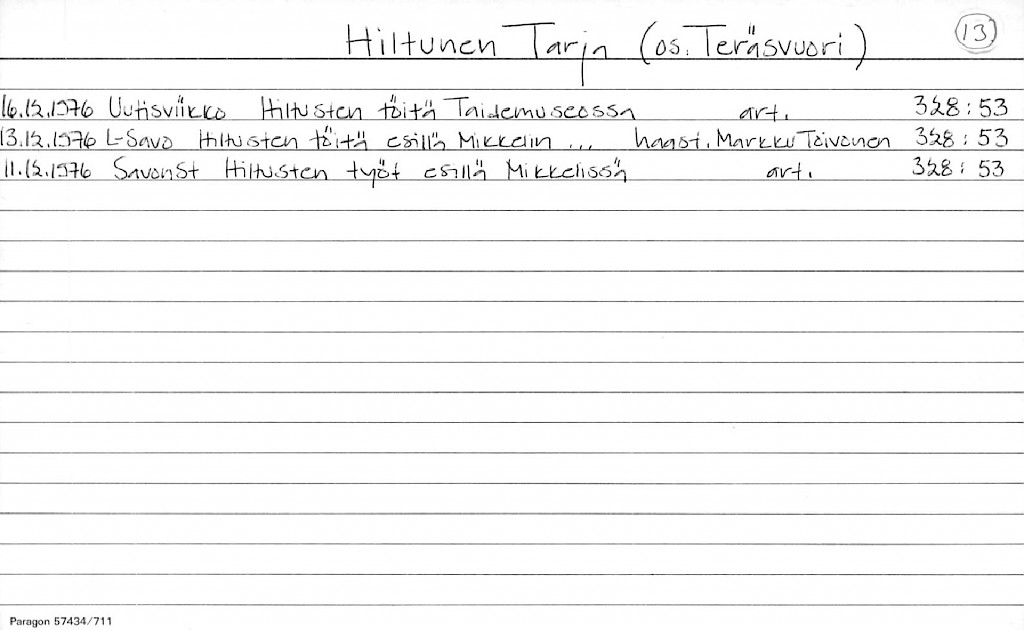 Hiltunen Tarja (os. Teräsvuori) 13
16.12.1976 Uutisviikko Hiltusten töitä Taidemuseossa art. 328:53
13.12.1976 L-Savo Hiltusten töitä esillä Mikkelin ... haast. Markku Toivonen 328:53
11.12.1976 SavonSt Hiltusten työt esillä Mikkelissä art. 328:53
Paragon 57434/711